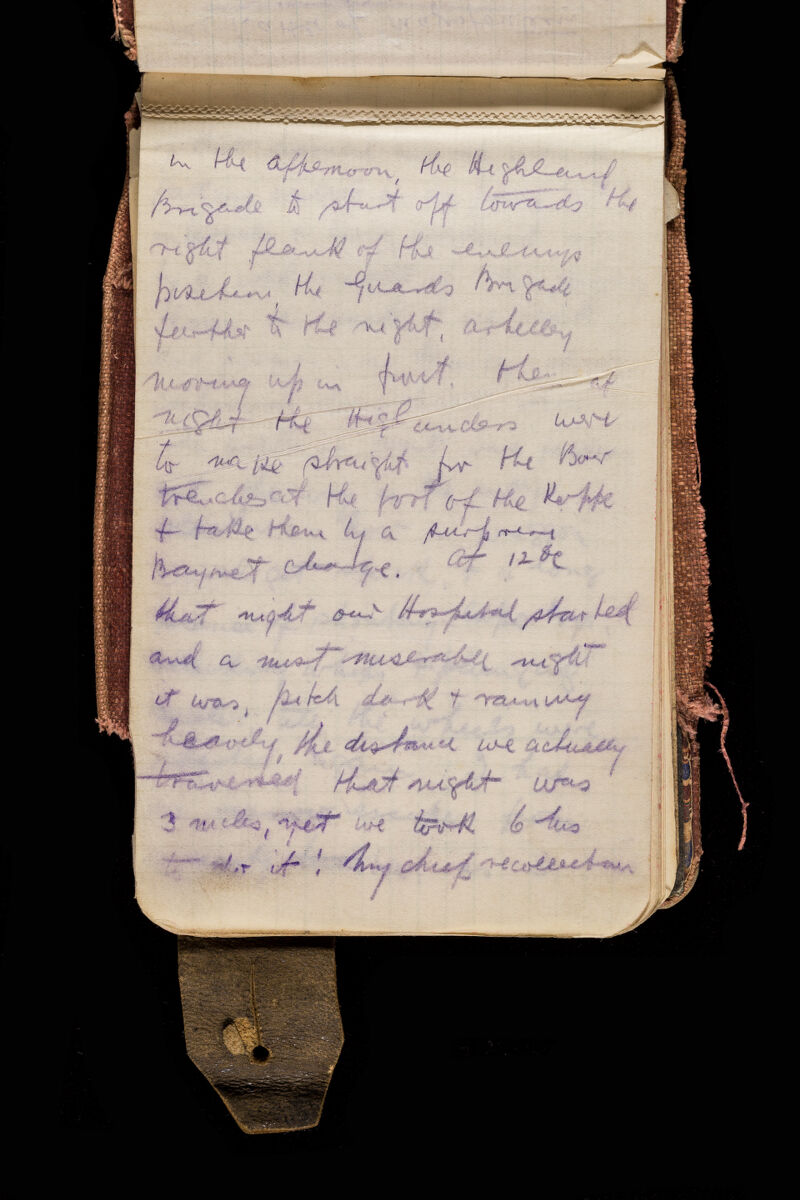 in the afternoon, the Highland
Brigade to start off towards the
right flank of the enemys
position, the Guards Brigade
further to the right, artillery
moving up in front. then at
night the Highlanders were
to make straight for the Boer
trenches at the foot of the Kopje
+ take them by a surprise
Bayonet charge. At 12 oc
that night our Hospital started
and a most miserable night
it was, pitch dark + raining
heavily, the distance we actually
traversed that night was
3 miles, yet we took 6 hrs
to do it! My chief recollection